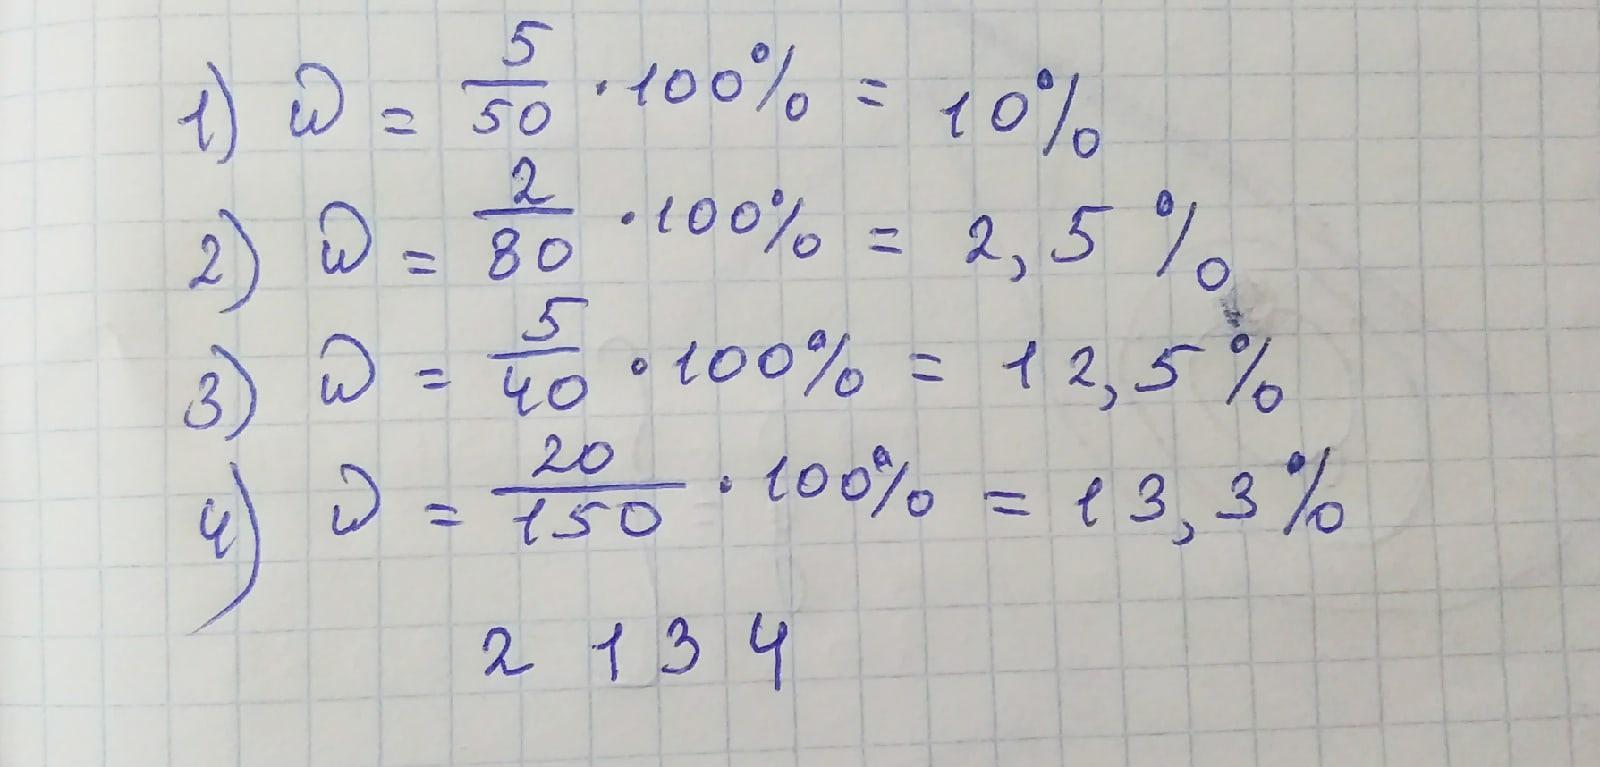 1) ω = 5/50 · 100% = 10%
2) ω = 2/80 · 100% = 2,5%
3) ω = 5/40 · 100% = 12,5%
4) ω = 20/150 · 100% = 13,3%
2 1 3 4